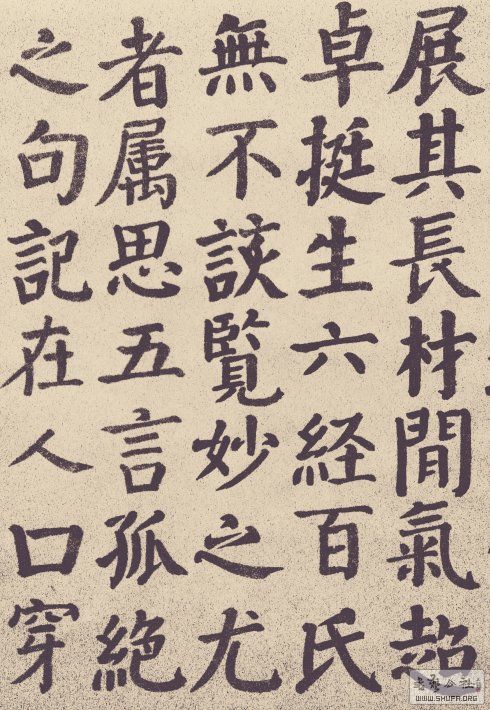 展其長材閒氣超
卓挺生六経百氏
無不該覧妙之尤
者属思五言孤絶
之句記在人口穿
WWW.SHUFA.ORG